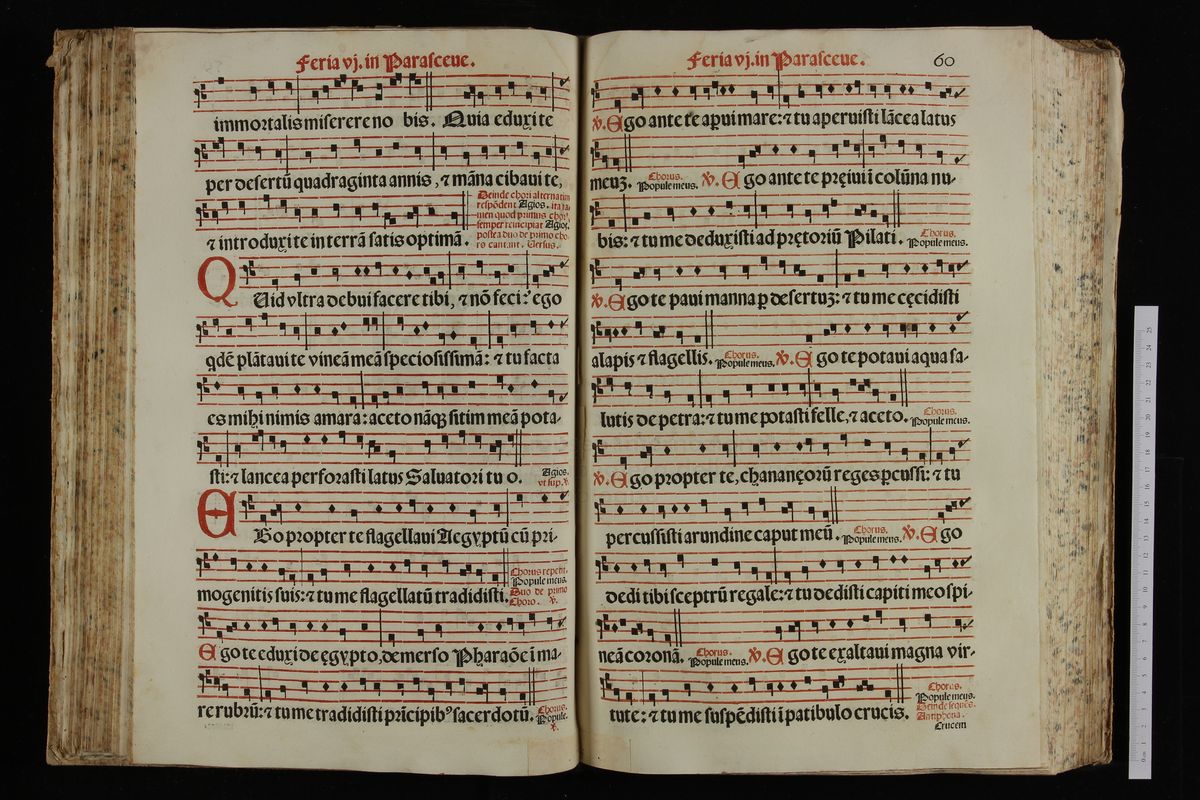 Feria vj. in Parasceue.
immortalis miserere no bis. Quia eduxi te
per desertū quadraginta annis, ⁊ māna cibaui te,
Deinde chori alternatim
respōdent Agios. ita ta-
men quod primus chor⁹
semper reincipiat Agios.
postea duo de primo cho-
ro cantant. Versus.
⁊ introduxi te in terrā satis optimā.
QVid vltra debui facere tibi, ⁊ nō feci? ego
qdē plātaui te vineā meā speciosissimā: ⁊ tu facta
es mihi nimis amara: aceto nāq3 sitim meā pota-
sti: ⁊ lancea perforasti latus Saluatori tu o.
Agios.
vt sup. ℣.
EGo propter te flagellaui Aegyptū cū pri-
mogenitis suis: ⁊ tu me flagellatū tradidisti.
Chorus repetit.
Popule meus.
Duo de primo
Choro. ℣.
Ego te eduxi de ęgypto, demerso Pharaōe ī ma-
re rubrū: ⁊ tu me tradidisti prīcipib⁹ sacerdotū.
Chorus.
Popule.
℣.
Feria vj. in Parasceue. 60
℣. Ego ante te aperui mare: ⁊ tu aperuisti lācea latus
meuʒ. Chorus. Popule meus. ℣. Ego ante te pręiui ī colūna nu-
bis: ⁊ tu me deduxisti ad prętoriū Pilati. Chorus. Popule meus.
℣. Ego te paui manna ꝑ desertuʒ: ⁊ tu me cęcidisti
alapis ⁊ flagellis. Chorus. Popule meus. ℣. Ego te potaui aqua sa-
lutis de petra: ⁊ tu me potasti felle, ⁊ aceto. Chorus. Popule meus.
℣. Ego propter te, chananęorū reges ꝑcussi: ⁊ tu
percussisti arundine caput meū. Chorus. Popule meus. ℣. Ego
dedi tibi sceptrū regale: ⁊ tu dedisti capiti meo spi-
neā coronā. Chorus. Popule meus. ℣. Ego te exaltaui magna vir-
tute: ⁊ tu me suspēdisti ī patibulo crucis.
Chorus.
Popule meus.
Deinde sequēs
Antiphona.
Crucem